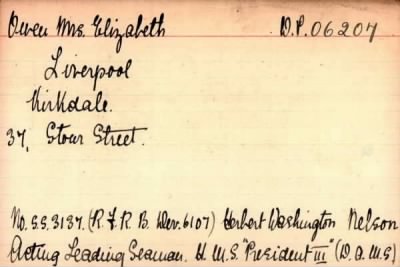 Owen Mrs. Elizabeth D.P. 06207
Liverpool
Kirkdale.
37, Stour Street.
No. S.S. 3137. (R.F.R. B. Dev. 6107) Herbert Washington Nelson
Acting Leading Seaman. H.M.S. "President III" (D.A.M.S)